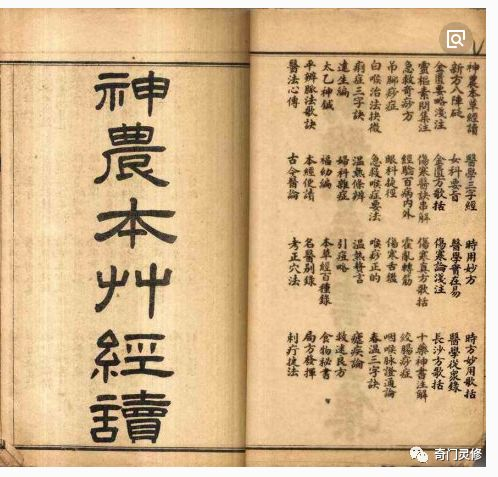 神農本草經讀 醫學三字經 時用妙方 時方妙用歌括
新方八陣砭 女科要旨 醫學實在易 醫學從衆錄
金匱要略淺注 金匱方歌括 傷寒論淺注 長沙方歌括
靈樞素問集注 傷寒醫訣串解 傷寒真方歌括 十藥神書注解
急救奇痧方 經驗百病內外 霍亂轉筋 絞腸痧症
吊腳痧症 眼科捷徑 傷寒舌鑑 咽喉脈證通論
白喉治法抉微 急救喉症要法 喉痧正的 春溫三字訣
痢症三字訣 溫熱條辨 溫熱贅言 瘧疾論
達生編 婦科雜症 引痘略 救迷良方
太乙神鍼 福幼編 本草經百種錄 食物秘書
平辨脈法歌訣 本經便讀 名醫別錄 局方發揮
醫法心傳 古今醫論 考正穴法 刺疔捷法
神農本艸經讀
奇门灵修